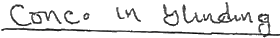 Conc. in blinding